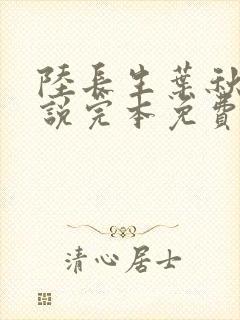 陸長生葉秋
說完本免費
清心居士